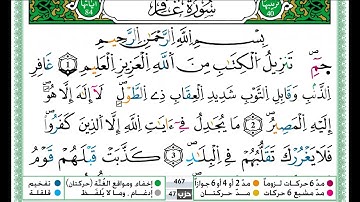 ترتيبها 40 سُورَةُ غَافِرٍ آياتها 84
بِسْمِ اللَّهِ الرَّحْمَٰنِ الرَّحِيمِ
حَمِٓ تَنزِيلُ الْكِتَٰبِ مِنَ اللَّهِ الْعَزِيزِ الْعَلِيمِ 1 غَافِرِ
الذَّنۢبِ وَقَابِلِ التَّوْبِ شَدِيدِ الْعِقَابِ ذِي الطَّوْلِ لَآ إِلَٰهَ إِلَّا هُوَ
إِلَيْهِ الْمَصِيرُ 2 مَا يُجَٰدِلُ فِي ءَايَٰتِ اللَّهِ إِلَّا الَّذِينَ كَفَرُوا
فَلَا يَغْرُرْكَ تَقَلُّبُهُمْ فِي الْبِلَٰدِ 3 كَذَّبَتْ قَبْلَهُمْ قَوْمُ
مدّ 6 حركات لزوماً مدّ 2 أو 4 أو 6 جوازاً 467 إخفاء ومواقع الغُنَّة (حركتان) تفخيم
مدّ مشبع 6 حركات مدّ حركتان حزب 47 إدغام ، وما لا يُلفَظ قلقلة